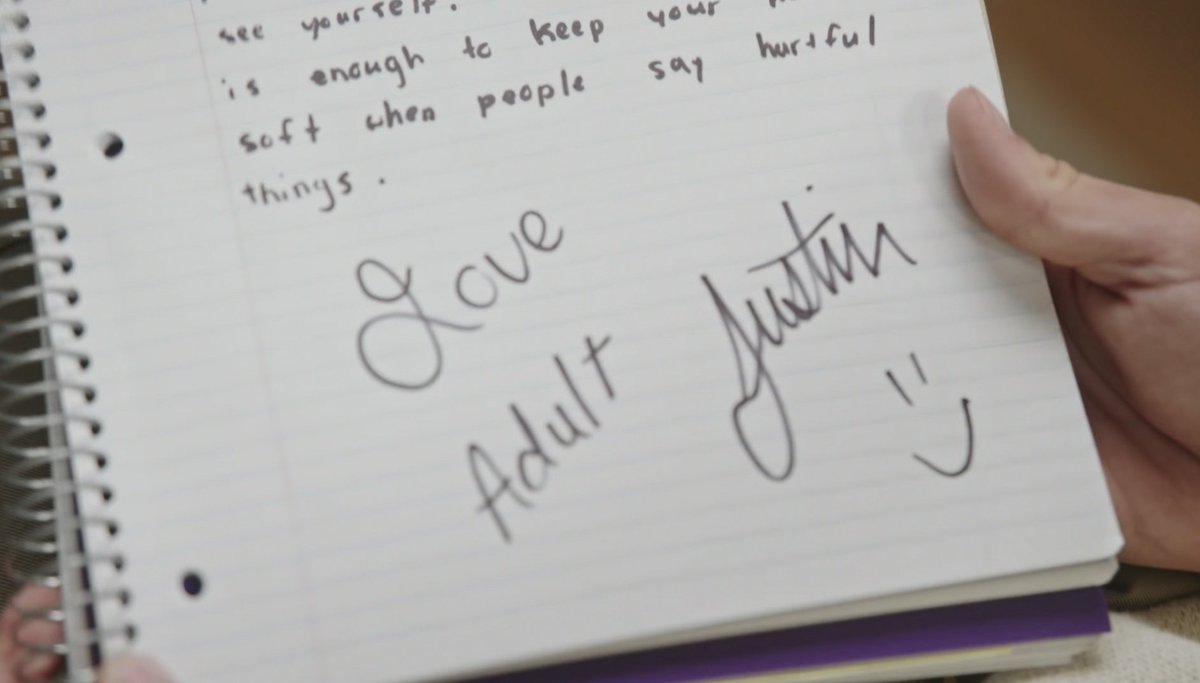 see yourself.
is enough to keep your
soft when people say hurtful
things.
Love
Adult Justin